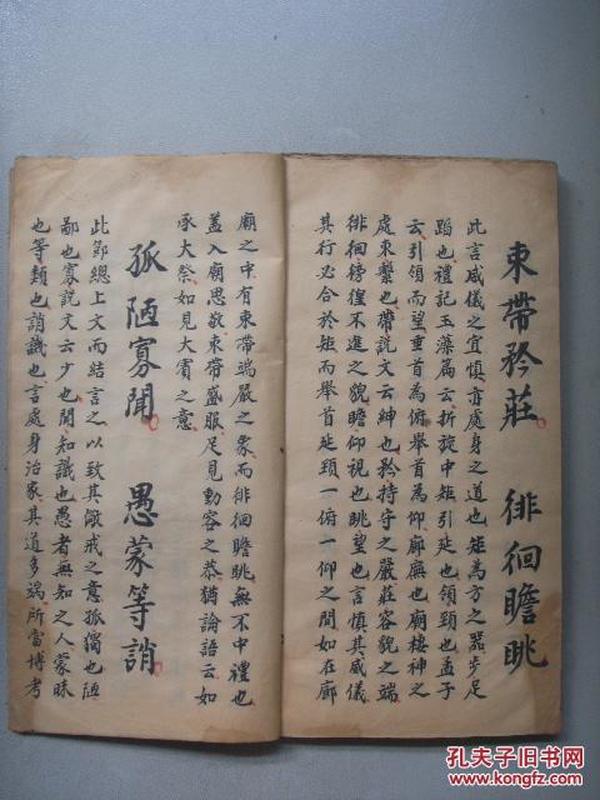 束帶矜莊 徘徊瞻眺
此言威儀之宜慎亦處身之道也矩為方之器步足
蹈也禮記玉藻篇云折旋中矩引延也領頸也孟子
云引領而望垂首為俯舉首為仰廊廡也廟棲神之
處束繫也帶說文云紳也矜持守之嚴莊容貌之端
徘徊徬徨不進之貌瞻仰視也眺望也言慎其威儀
其行必合於矩而舉首延頸一俯一仰之間如在廊
廟之中有束帶端嚴之象而徘徊瞻眺無不中禮也
蓋入廟思敬束帶盛服足見動容之恭猶論語云如
承大祭如見大賓之意
孤陋寡聞 愚蒙等誚
此節總上文而結言之以致其儆戒之意孤獨也陋
鄙也寡說文云少也聞知識也愚者無知之人蒙昧
也等類也誚譏也言處身治家其道多端所當博考
孔夫子旧书网
www.kongfz.com